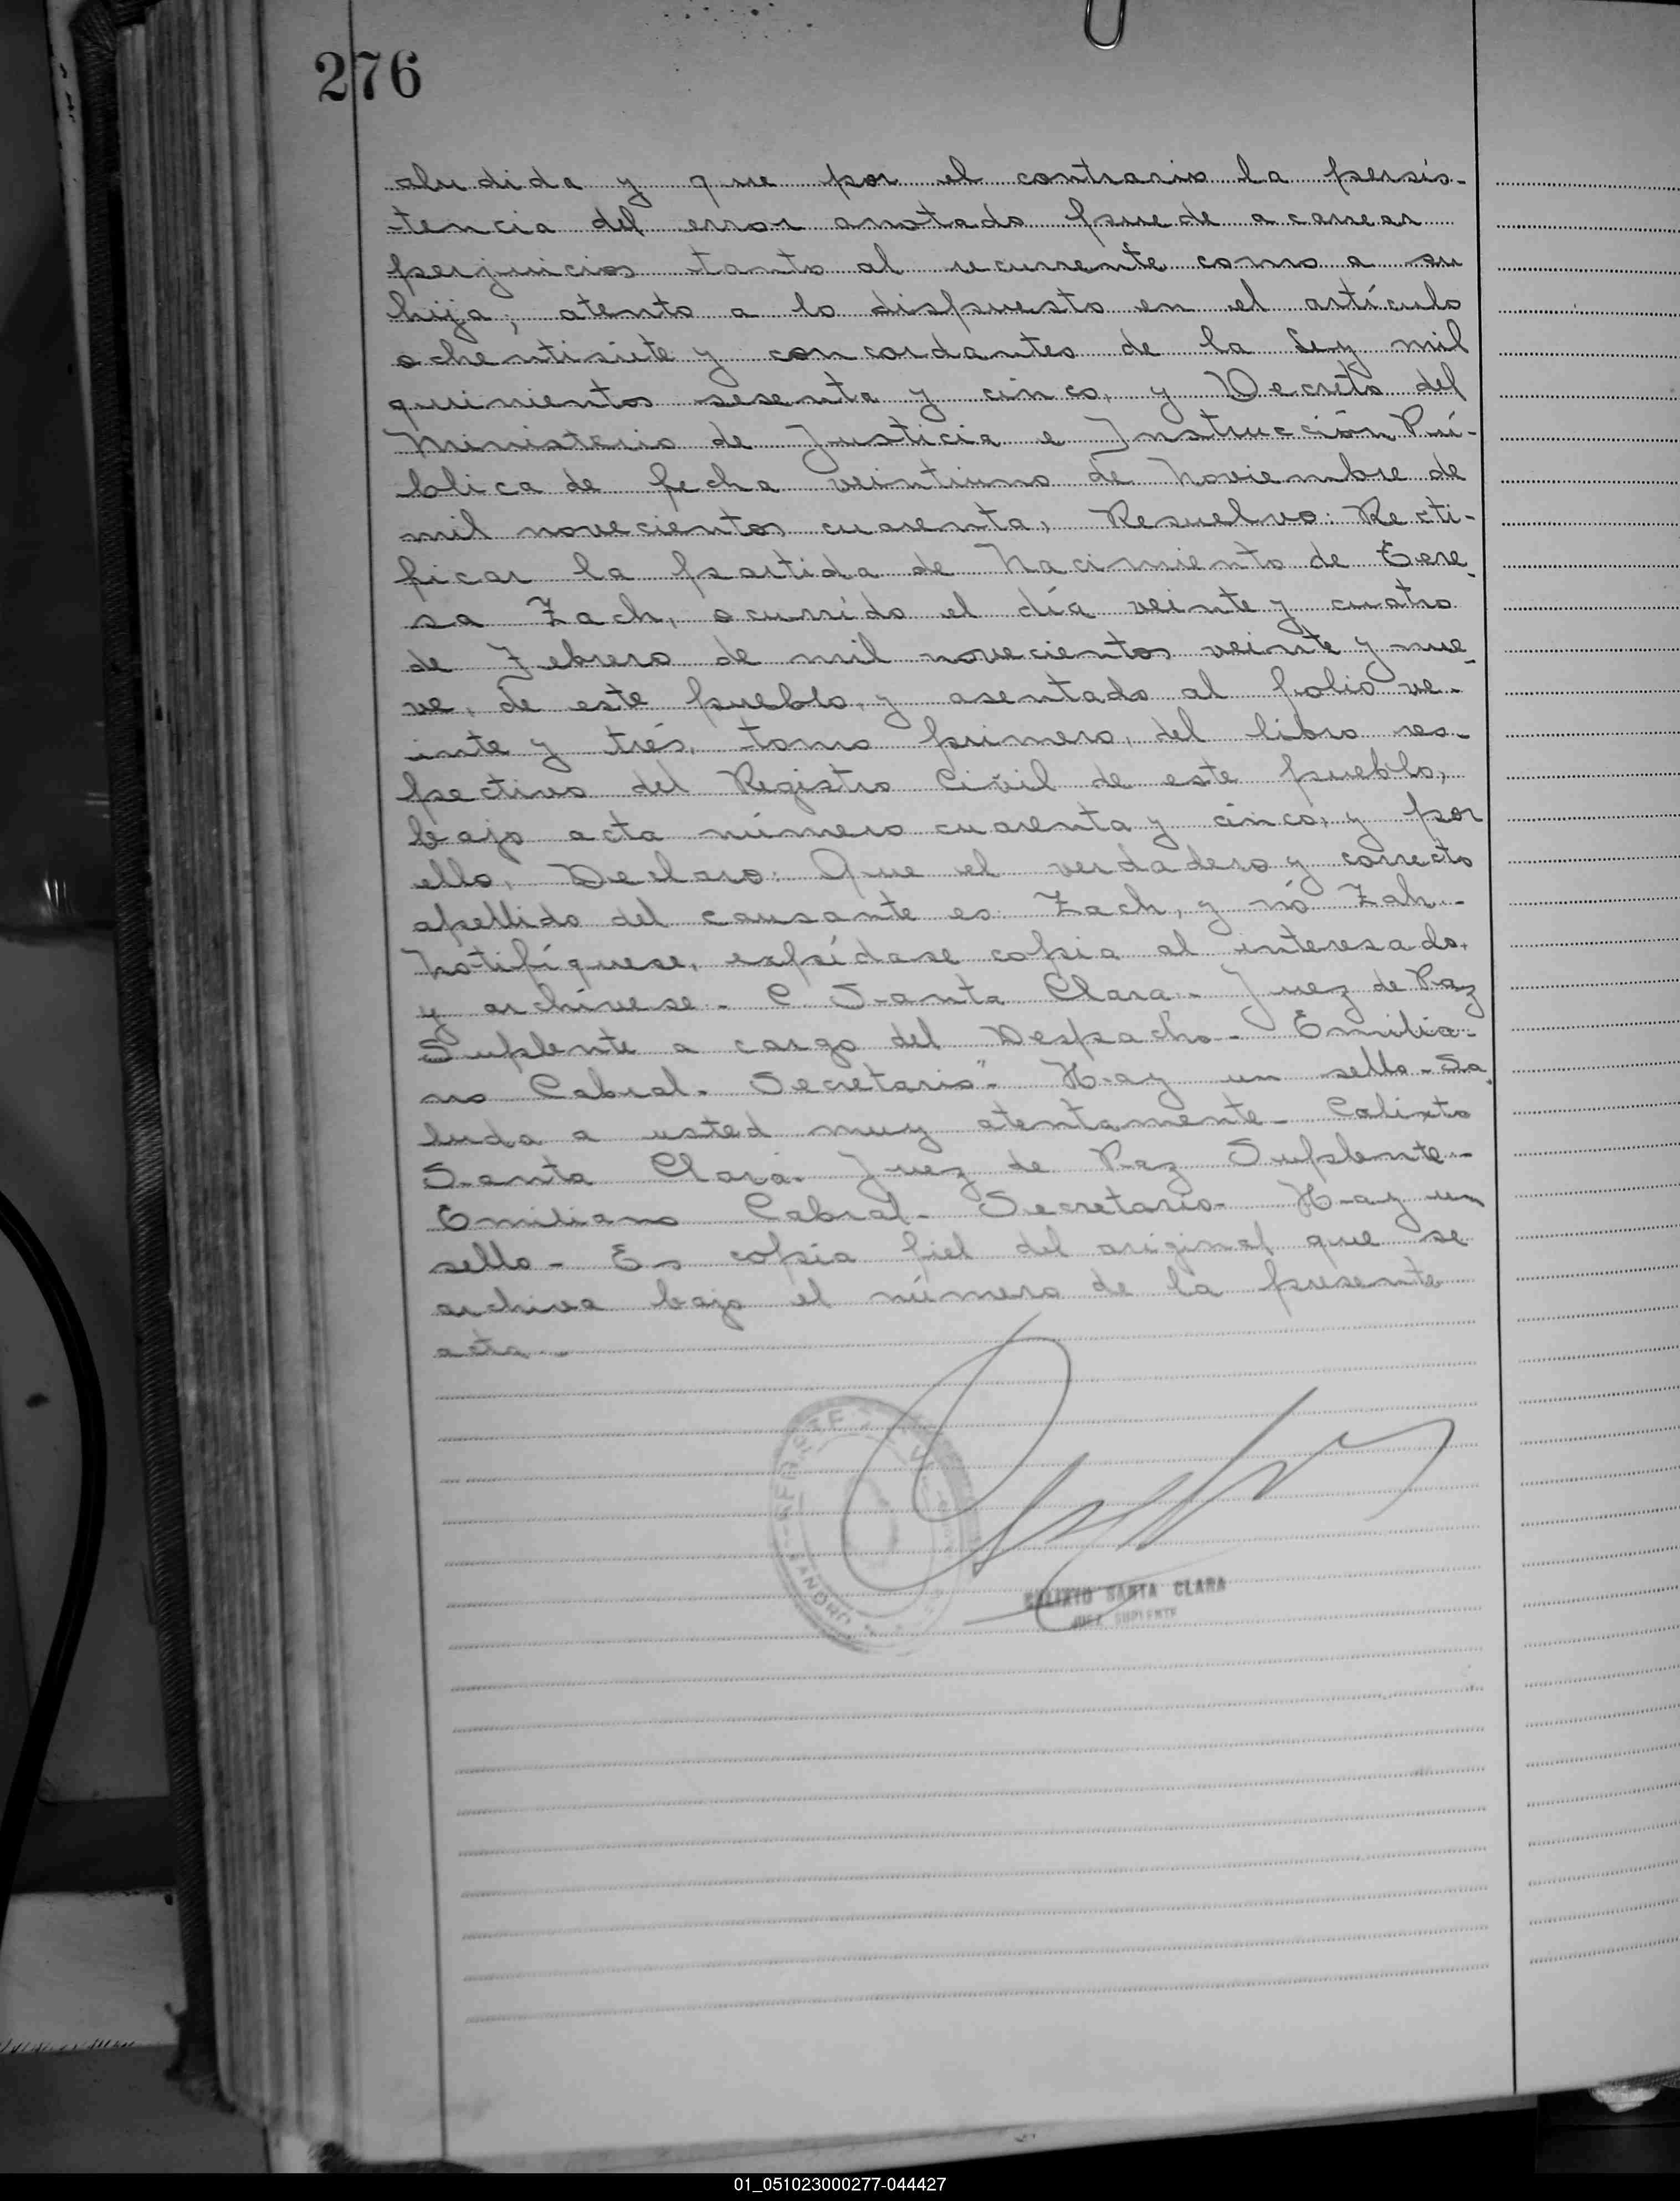 276
aludida y que por el contrario la persis-
tencia del error anotado puede acarrear
perjuicios tanto al recurrente como a su
hija; atento a lo dispuesto en el artículo
ochentisiete y concordantes de la Ley mil
quinientos sesenta y cinco, y Decreto del
Ministerio de Justicia e Instrucción Pú-
blica de fecha veintiuno de Noviembre de
mil novecientos cuarenta, Resuelvo: Recti-
ficar la partida de Nacimiento de Tere-
sa Zach, ocurrido el día veinte y cuatro
de Febrero de mil novecientos veinte y nue-
ve, de este pueblo, y asentado al folio ve-
inte y trés, tomo primero, del libro res-
pectivo del Registro Civil de este pueblo,
bajo acta número cuarenta y cinco, y por
ello, Declaro: Que el verdadero y correcto
apellido del causante es: Zach, y nó Zah.-
Notifíquese, expídase copia al interesado,
y archívese.- C Santa Clara.- Juez de Paz
Suplente a cargo del Despacho.- Emilia-
no Cabral.- Secretario".- Hay un sello.- Sa-
luda a usted muy atentamente.- Calixto
Santa Clara.- Juez de Paz Suplente.-
Emiliano Cabral.- Secretario.- Hay un
sello.- Es copia fiel del original que se
archiva bajo el número de la presente
acta.-
CALIXTO SANTA CLARA
JUEZ SUPLENTE
01_051023000277-044427